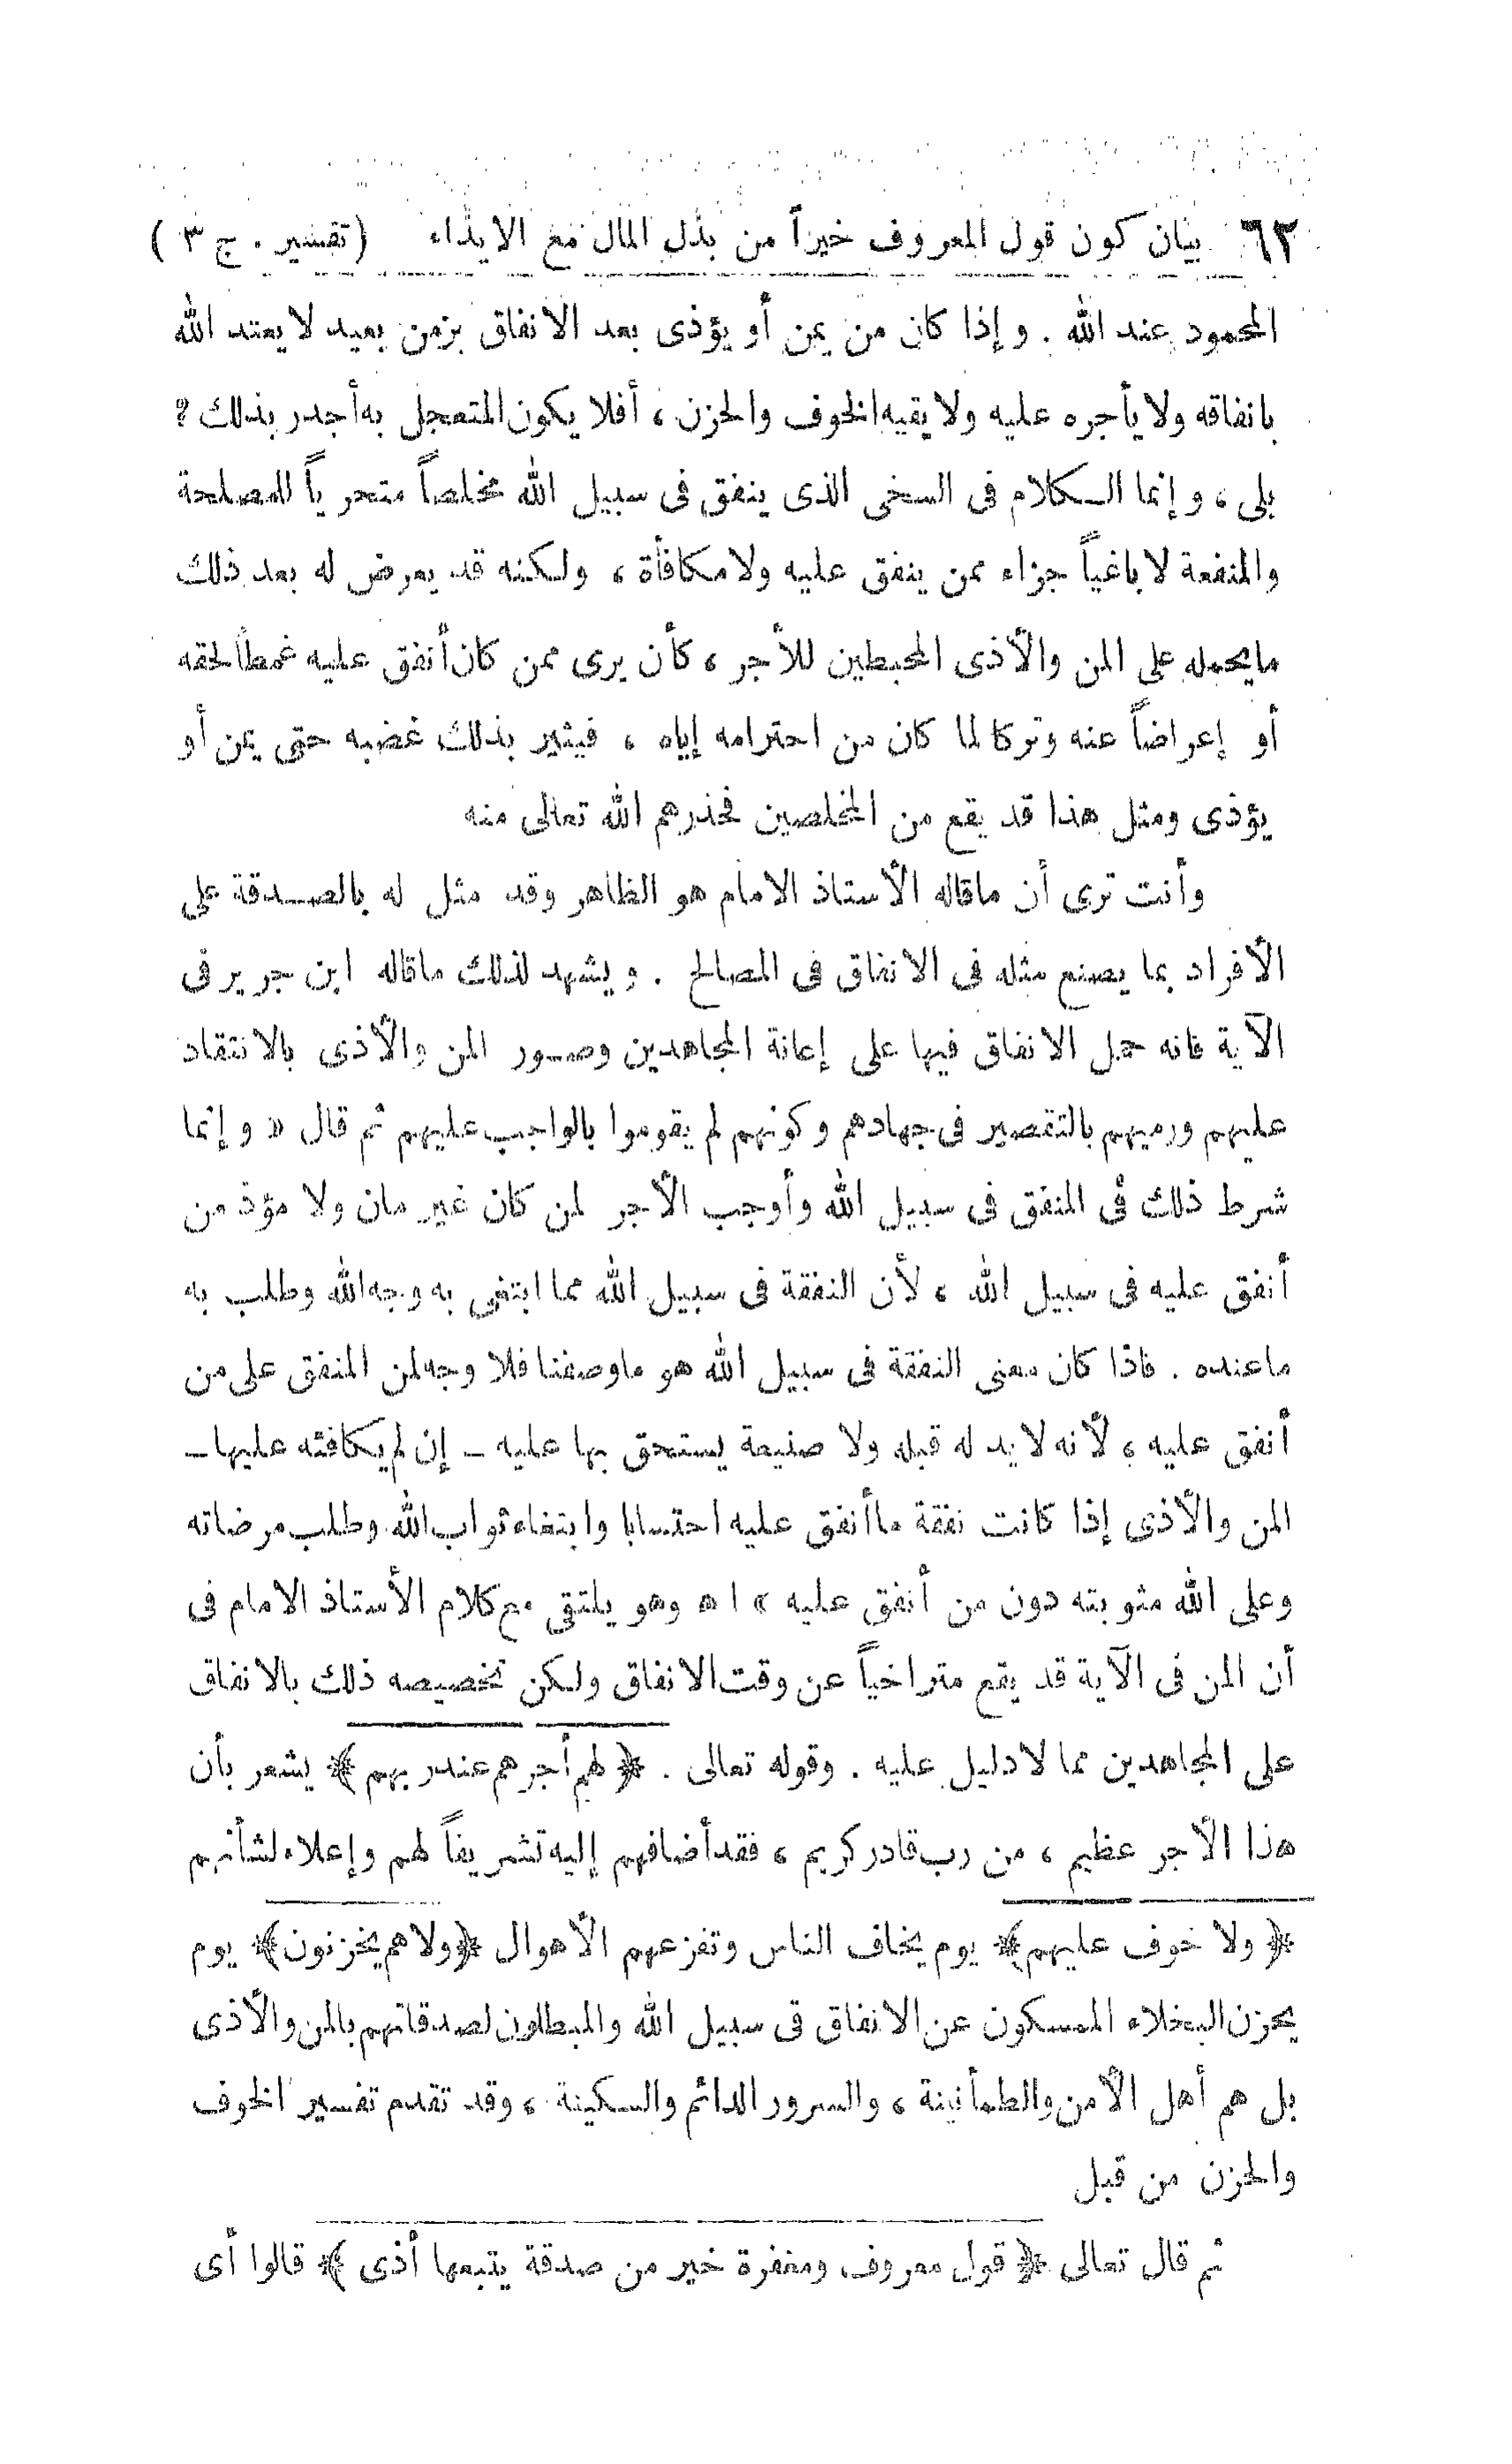 ٦٢ بيان كون قول المعروف خيراً من بذل المال مع الايذاء (تفسير . ج ٣)
المحمود عند الله . وإذا كان من يمن أو يؤذى بعد الانفاق بزمن بعيد لا يعتد الله
بانفاقه ولا يأجره عليه ولا يقيه الخوف والحزن ، أفلا يكون المتعجل به أجدر بذلك ؟
بلى ، وإنما الكلام فى السخى الذى ينفق فى سبيل الله مخلصاً متحرياً للمصلحة
والمنفعة لا باغياً جزاء ممن ينفق عليه ولا مكافأة ، ولكنه قد يعرض له بعد ذلك
مايحمله على المن والأذى المحبطين للأجر ، كأن يرى ممن كان أنفق عليه غمطاً لحقه
أو إعراضاً عنه وتركا لما كان من احترامه إياه ، فيثير بذلك غضبه حتى يمن أو
يؤذى ومثل هذا قد يقع من المخلصين فحذرهم الله تعالى منه
وأنت ترى أن ماقاله الأستاذ الامام هو الظاهر وقد مثل له بالصدقة على
الأفراد بما يصنع مثله فى الانفاق فى المصالح . ويشهد لذلك ماقاله ابن جرير فى
الآية فانه حمل الانفاق فيها على إعانة المجاهدين وصور المن والأذى بالانتقاد
عليهم ورميهم بالتقصير فى جهادهم وكونهم لم يقوموا بالواجب عليهم ثم قال « وإنما
شرط ذلك فى المنفق فى سبيل الله وأوجب الأجر لمن كان غير مان ولا مؤذ من
أنفق عليه فى سبيل الله ، لأن النفقة فى سبيل الله مما ابتغى به وجه الله وطلب به
ماعنده . فاذا كان معنى النفقة فى سبيل الله هو ماوصفنا فلا وجه لمن المنفق على من
أنفق عليه ، لأنه لا يد له قبله ولا صنيعة يستحق بها عليه – إن لم يكافئه عليها –
المن والأذى إذا كانت نفقة ماأنفق عليه احتسابا وابتغاء ثواب الله وطلب مرضاته
وعلى الله مثوبته دون من أنفق عليه » ا ه وهو يلتقى مع كلام الأستاذ الامام فى
أن المن فى الآية قد يقع متراخياً عن وقت الانفاق ولكن تخصيصه ذلك بالانفاق
على المجاهدين مما لا دليل عليه . وقوله تعالى . ﴿ لهم أجرهم عند ربهم ﴾ يشعر بأن
هذا الأجر عظيم ، من رب قادر كريم ، فقد أضافهم إليه تشريفاً لهم وإعلاء لشأنهم
﴿ ولا خوف عليهم ﴾ يوم يخاف الناس وتفزعهم الأهوال ﴿ ولا هم يحزنون ﴾ يوم
يحزن البخلاء الممسكون عن الانفاق فى سبيل الله والمبطلون لصدقاتهم بالمن والأذى
بل هم أهل الأمن والطمأنينة ، والسرور الدائم والسكينة ، وقد تقدم تفسير الخوف
والحزن من قبل
ثم قال تعالى ﴿ قول معروف ومغفرة خير من صدقة يتبعها أذى ﴾ قالوا أى